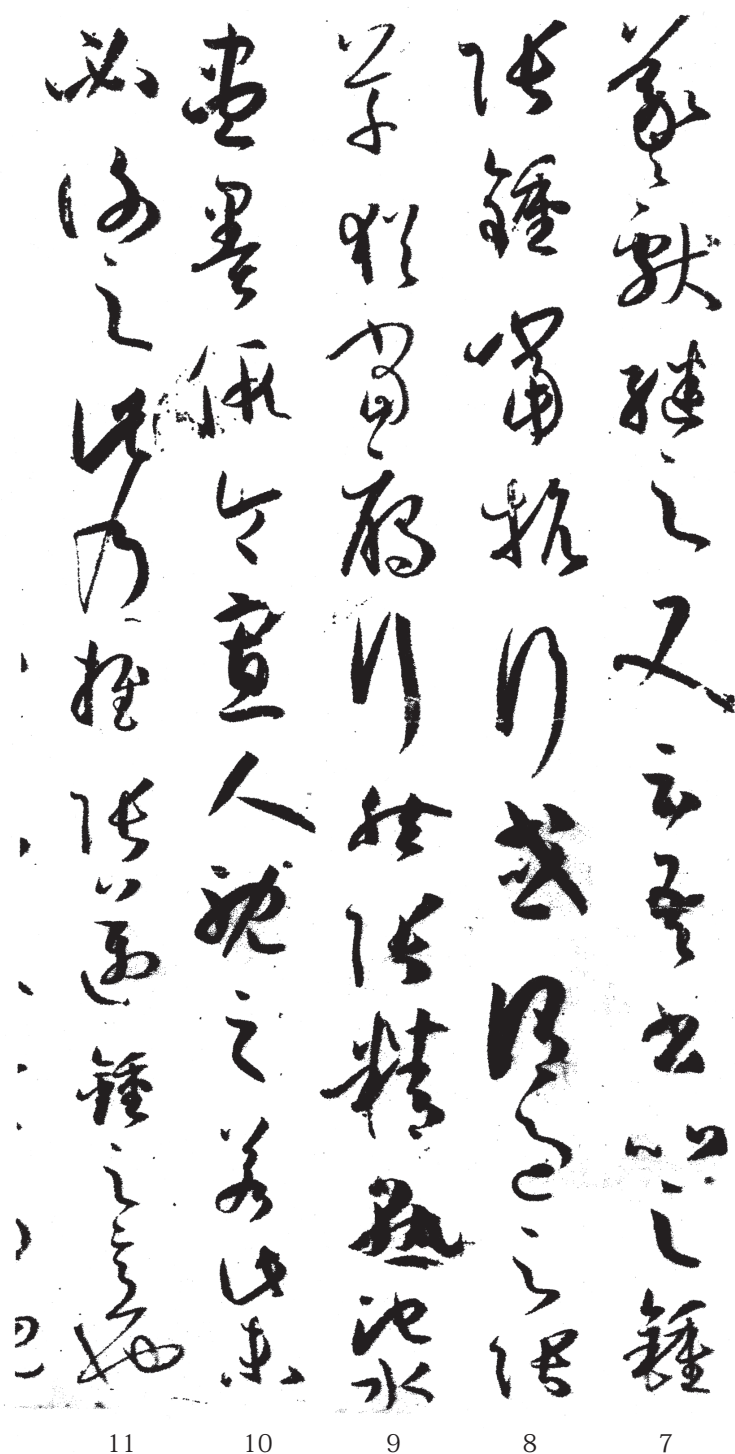 羲獻繼之又云吾書比之鍾
張鍾當抗行或謂過之張
草猶當鴈行然張精熟池水
盡墨假令寡人耽之若此未
必謝之此乃推張邁鍾之意也
11 10 9 8 7